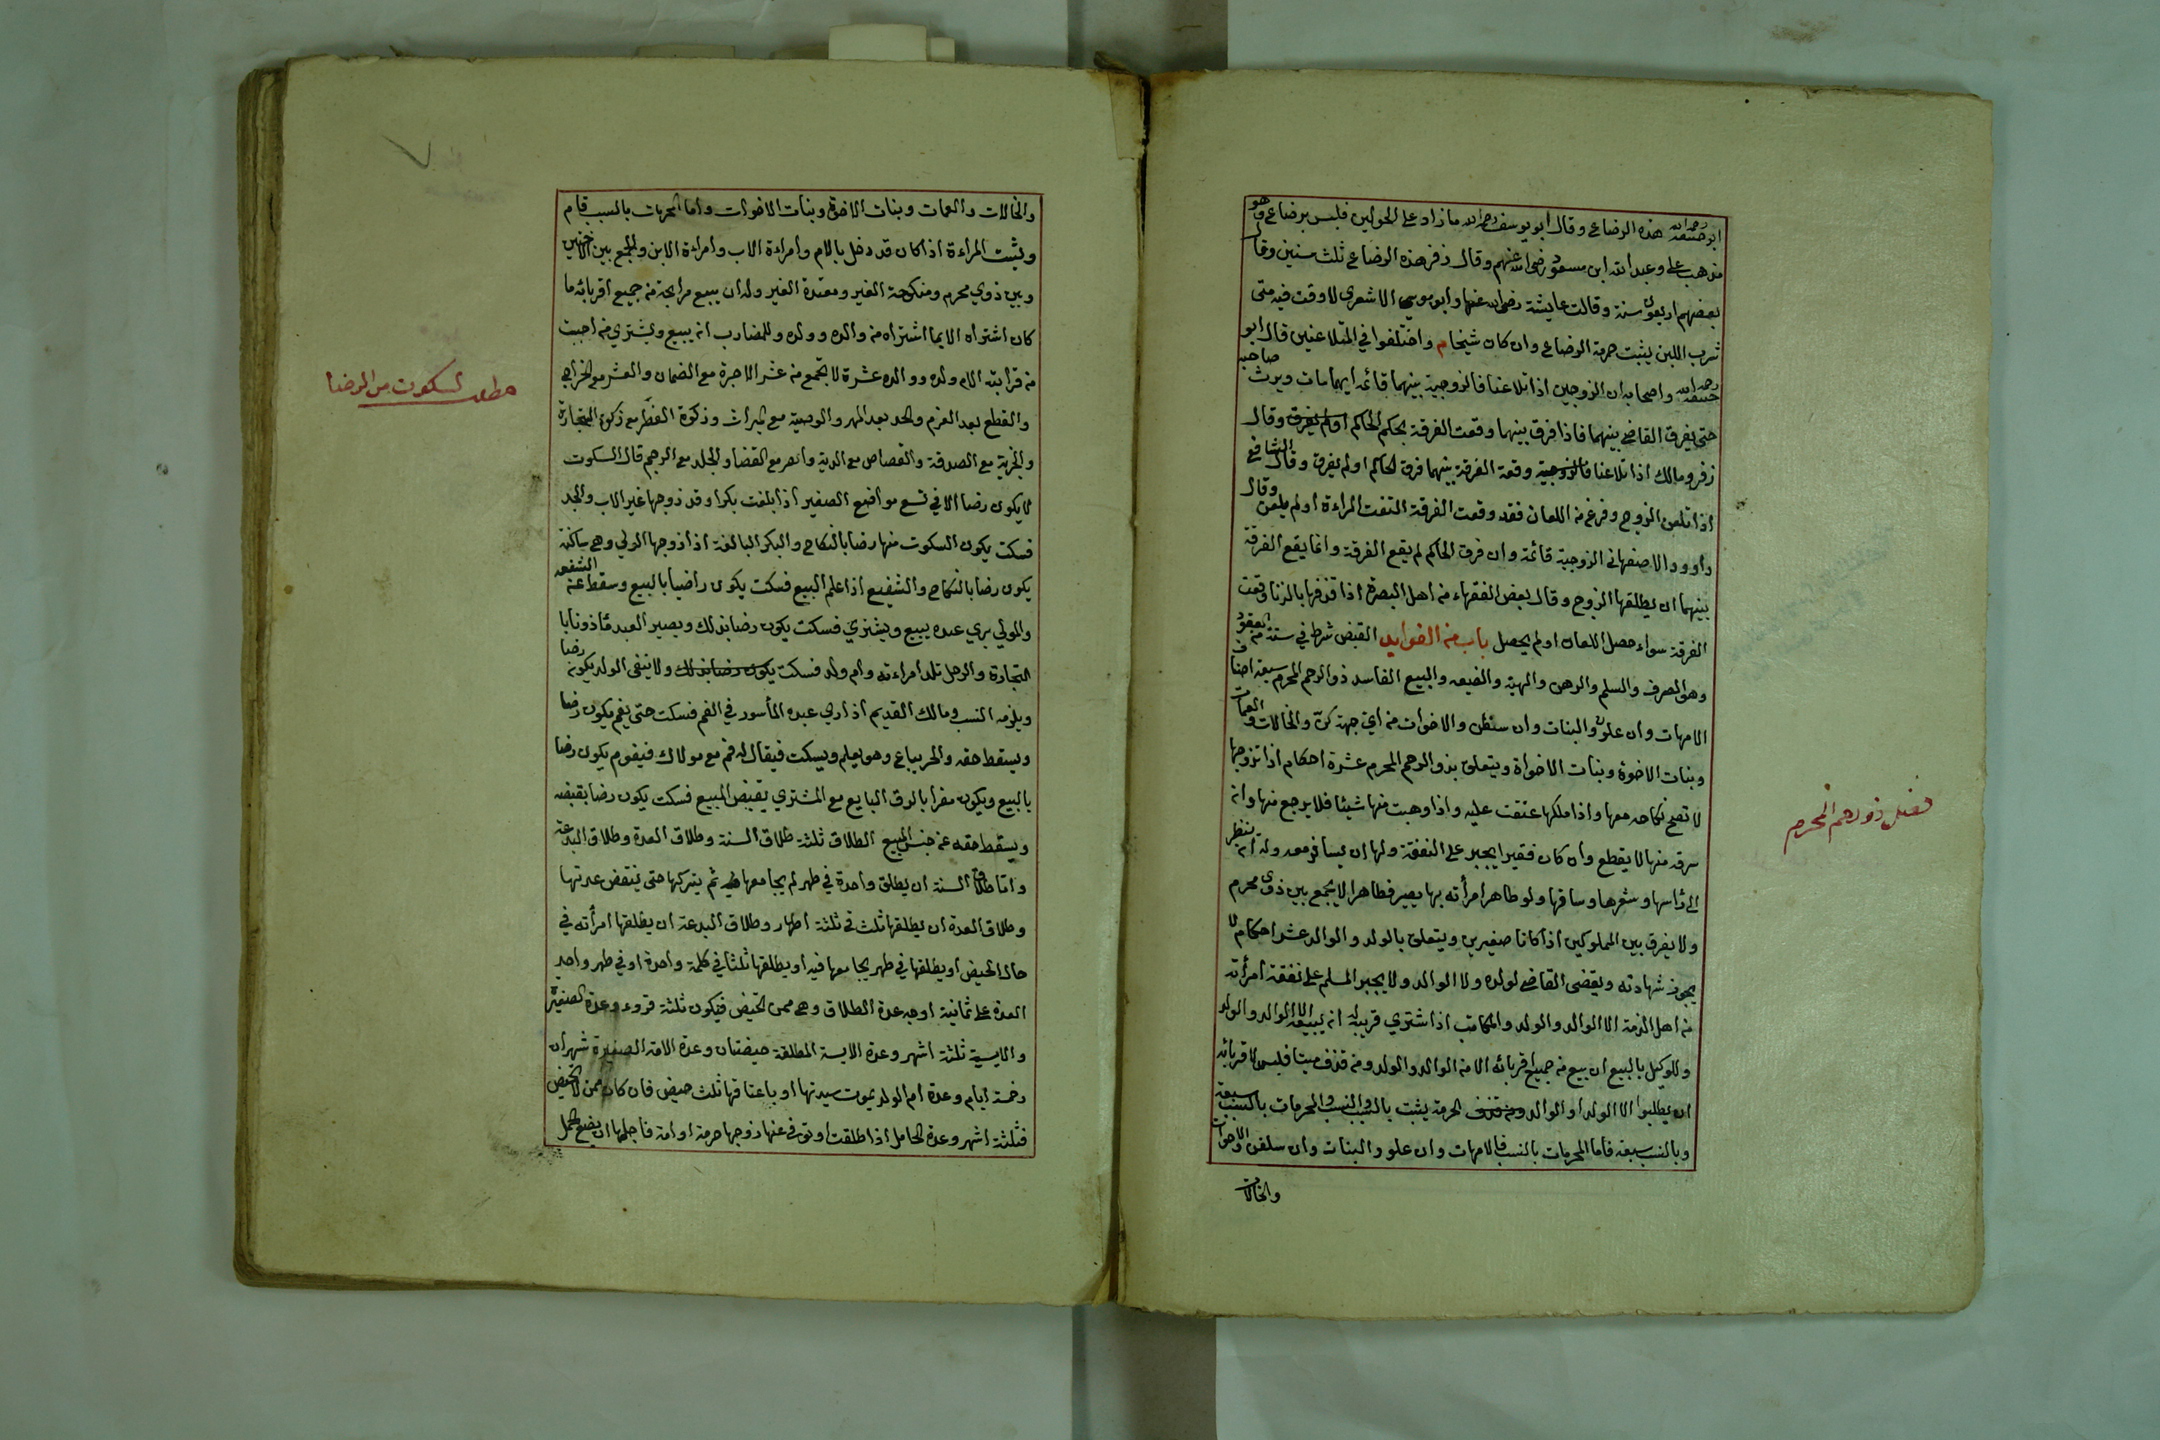 ابو حنيفة رحمه الله هذه الرضاعي وقال أبو يوسف رحمه الله ما زاد على الحولين فليس برضاعي وهو
مذهب علي وعبد الله ابن مسعود رضي الله عنهم وقال زفر هذه الرضاعي ثلث سنين وقال
بعضهم اربعون سنة وقالت عايشة رضي الله عنها وابو موسى الاشعري لا وقت فيه متى
شرب اللبن يثبت حرمة الرضاعي وان كان شيخا م واختلفوا في المتلاعنين قال ابو
حنيفة رحمه الله وصاحبه واصحابه ان الزوجين اذا تلاعنا فالزوجية بينهما قائمة ايهما مات ويرث
حتى يفرق القاضي بينهما فاذا فرق بينهما وقعت الفرقة بحكم الحاكم او لم يفرق وقال
زفر ومالك اذا تلاعنا فالزوجية وقعة الفرقة بينهما فرق الحاكم او لم يفرق وقال الشافعي
اذا تلعن الزوج وفرغ من اللعان فقد وقعت الفرقة التفت المراءة او لم يلعن وقال
داوود الاصفهاني الزوجية قائمة وان فرق الحاكم لم يقع الفرقة وانما يقع الفرقة
بينهما ان يطلقها الزوج وقال بعض الفقهاء من اهل البصرة اذا قذفها بالزنا وقعت
الفرقة سواء حصل اللعان او لم يحصل باب من الفوايد القبض شرط في ستة من العقود
وهو الصرف والسلم والرهن والهبة والبيع الفاسد ذو الرحم المحرم سبعة اصناف
الامهات وان علون والبنات وان سفلن والاخوات من اي جهة كن والخالات والعمات
وبنات الاخوة وبنات الاخواة ويتعلق بذو الرحم المحرم عشرة احكام اذا تزوجها
لا تصح نكاحه معها واذا ملكها عتقت عليه واذا وهبت منها شيئا فلا يرجع منها وان
سرق منها لا يقطع وان كان فقيرا يجبر على النفقة ولها ان يسافر معه وله ان ينظر
الى راسها وشعرها وساقها ولو ظاهر امرأته بها يصير مظاهرا لا يجمع بين ذوي محرم
ولا يفرق بين المملوكين اذا كانا صغيرين ويتعلق بالولد والوالد عشر احكام لا
يجوز شهادته ويقضي القاضي لولده ولا الوالد ولا يجبر المسلم على نفقة امرأته
من اهل الذمة الا الوالد والولد والمكاتب اذا اشتري قريبه له ان يبيعه الا الوالد والولد
وللوكيل بالبيع ان بيع من جميع اقربائه الا من الوالد والولد ومن قذف ميتا فليس لاقربائه
ان يطلبوا الا الولد او الوالد ومن قذف الحرمة يثبت بالسبب والنسب والمحرمات بالسبب سبعة
وبالنسب سبعة فاما المحرمات بالنسب فالامهات وان علو والبنات وان سفلن والاخوات
والخالات
فصل ذو رحم المحرم
والخالات والعمات وبنات الاخوة وبنات الاخوات واما المحرمات بالسبب فام
وبنت المراءة اذا كان قد دخل بالام وامراءة الاب وامراءة الابن والجمع بين الاختين
وبين ذوي محرم ومنكوحة الغير ومعتدة الغير وله ان يبيع مرابحة من جميع اقربائه ما
كان اشتراه الا بما اشتراه من والده وولده وللمضارب ان يبيع ويشتري من اجبت
من قرابته الا من ولده ووالده عشرة لا يجمع من عشر الاجرة مع الضمان والعشر مع الخراج
والقطع بعد الغرم والحد بعد المهر والوصية مع الميراث وزكوة الفطر مع زكوة التجارة
والجزية مع الصدقة والقصاص مع الدية والصوم مع القضا والجلد مع الرجم قال السكوت
لا يكون رضا الا في تسع مواضع الصغير اذا بلغت بكرا وقد زوجها غير الاب والجد
فسكت يكون السكوت منها رضا بالنكاح والبكر البالغة اذا زوجها الولي وهي ساكتة
يكون رضا بالنكاح والشفيع اذا علم البيع فسكت يكون راضيا بالبيع وسقط عنه الشفعة
والمولي يري عبده يبيع ويشتري فسكت يكون رضا بذلك ويصير العبد مأذونا با
لتجارة والرجل تلد امراءته وام ولد فسكت يكون رضا بذلك ولا ينتفي الولد يكون رضا
ويلزمه النسب ومالك القديم اذا رى عبده المأسور في الغنم فسكت حتى يغنم يكون رضا
ويسقط حقه والحر يباع وهو يعلم ويسكت فيقال له قم مع مولاك فيقوم يكون رضا
بالبيع ويكون مقرا بالرق البايع مع المشتري يقبض المبيع فسكت يكون رضا بقبضه
ويسقط حقه عن حبس المبيع الطلاق ثلثة طلاق السنة وطلاق العدة وطلاق البدعة
واما طلاق السنة ان يطلق واحدة في طهر لم يجامعها فيه ثم يتركها حتى ينقض عدتها
وطلاق العدة ان يطلقها ثلث في ثلثة اطهار وطلاق البدعة ان يطلقها امرأته في
حال الحيض او يطلقها في طهر يجامعها فيه او يطلقها ثلثا في كلمة واحدة او في طهر واحد
العدة على ثمانية اوجه عدة الطلاق وهي ممن تحيض فيكون ثلثة قروء وعدة الصغيرة
والايسة ثلثة اشهر وعدة الامة المطلقة حيضتان وعدة الامة الصغيرة شهران
وخمسة ايام وعدة ام الولد بموت سيدتها او باعتاقها ثلث حيض فان كان ممن لا تحيض
فثلثة اشهر وعدة الحامل اذا طلقت او توفي عنها زوجها حرمة او امة فاجلها ان يضع حمل
مطلب السكوت من الرضا